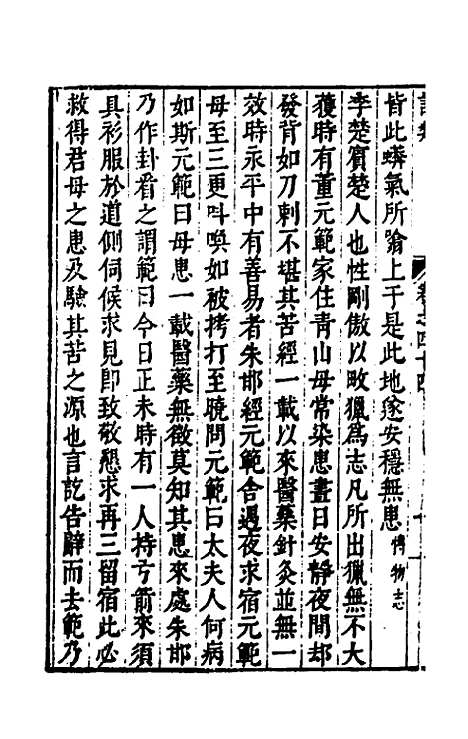 皆此蠎氣所噏上于是此地遂安穩無患博物志
李楚賓楚人也性剛傲以畋獵為志凡所出獵無不大
獲時有董元範家住青山母常染患晝日安靜夜間却
發背如刀刺不堪其苦經一載以來醫藥針灸並無一
效時永平中有善易者朱邯經元範舍過夜求宿元範
母至三更呌喚如被拷打至曉問元範曰太夫人何病
如斯元範曰母患一載醫藥無徵莫知其患來處朱邯
乃作卦看之謂範曰今日正未時有一人持弓箭來須
具衫服於道側伺候求見即致敬懇求再三留宿此必
救得君母之患及驗其苦之源也言訖告辭而去範乃